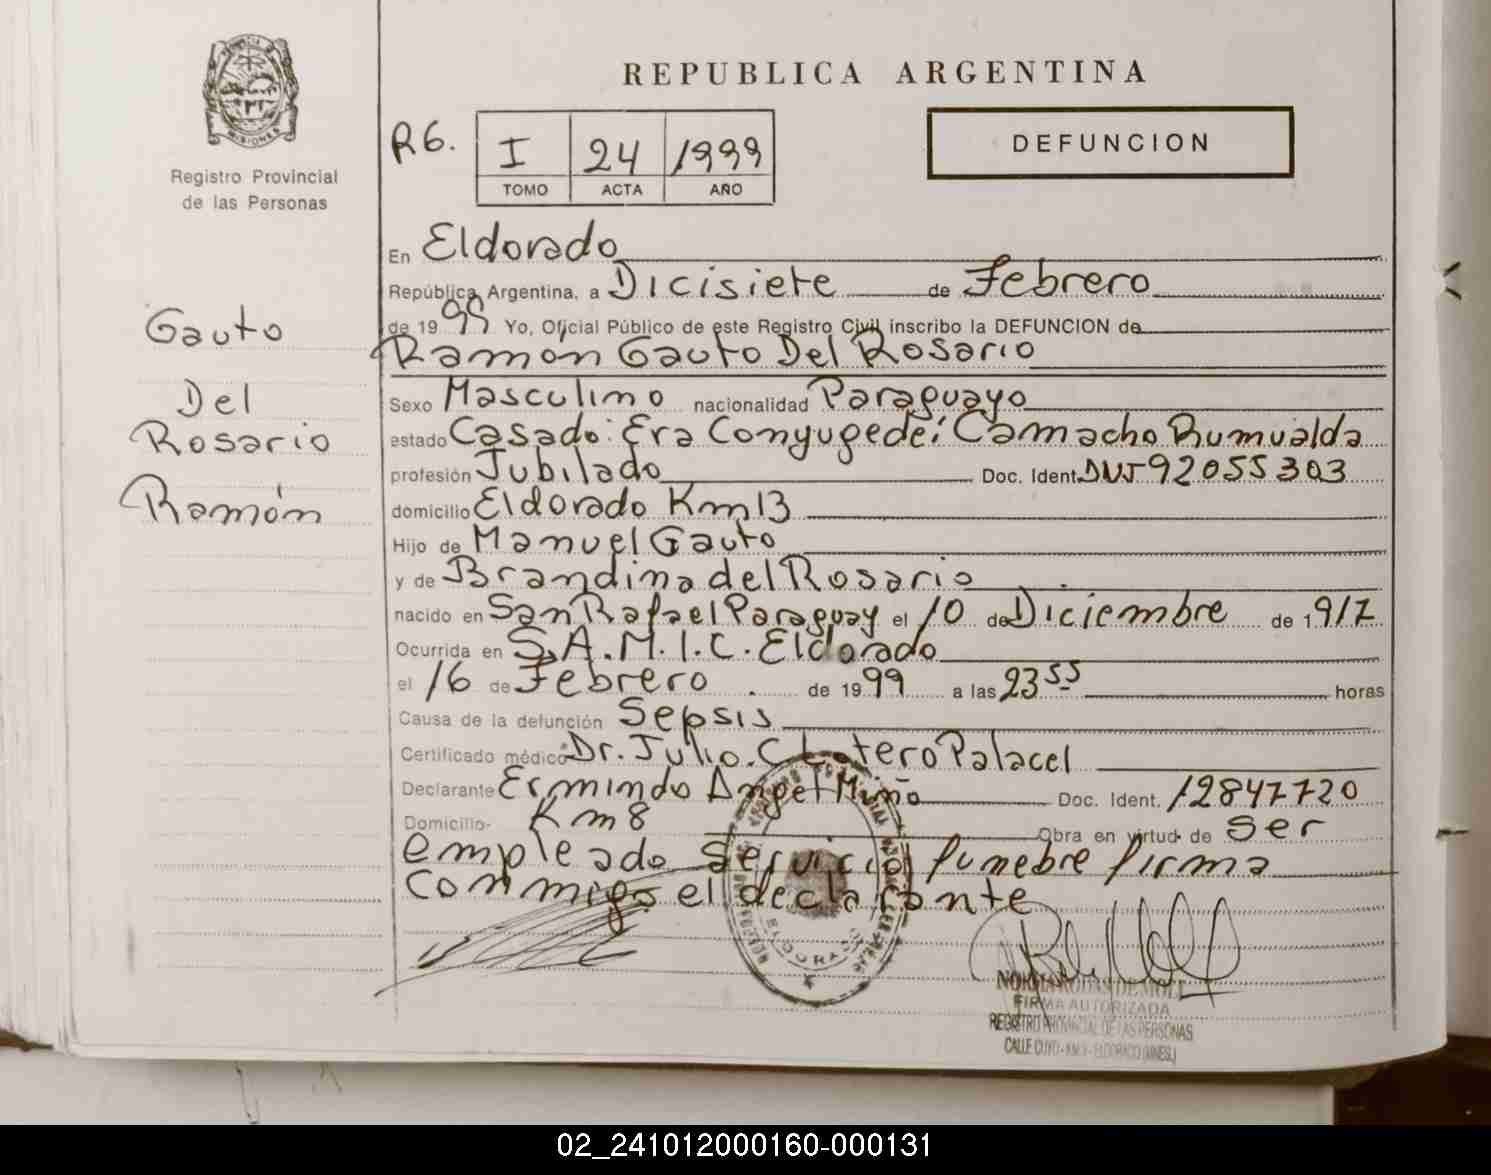 PROVINCIA D
MISIONES
Registro Provincial
de las Personas
Gauto
Del
Rosario
Ramón
REPUBLICA ARGENTINA
R6. I 24 1999
TOMO ACTA AÑO
DEFUNCION
En Eldorado
República Argentina, a Dicisiete de Febrero
de 1999 Yo, Oficial Público de este Registro Civil inscribo la DEFUNCION de
Ramón Gauto Del Rosario
Sexo Masculino nacionalidad Paraguayo
estado Casado: Era Conyugede: Camacho Rumualda
profesión Jubilado Doc. Ident. DNI 92055303
domicilio Eldorado Km 13
Hijo de Manuel Gauto
y de Brandina del Rosario
nacido en San Rafael Paraguay el 10 de Diciembre de 1917
Ocurrida en S.A.M.I.C. Eldorado
el 16 de Febrero de 1999 a las 23 55 horas
Causa de la defunción Sepsis
Certificado médico Dr. Julio. C Lotero Palacel
Declarante Ermindo Angel Miño Doc. Ident. 12847720
Domicilio- Km 8 Obra en virtud de Ser
empleado Servicio funebre firma
conmigo el declarante
ELDORADO
NORMA RODAS DE MOLL
FIRMA AUTORIZADA
REGISTRO PROVINCIAL DE LAS PERSONAS
CALLE CUYO - KM 9 - ELDORADO (MNES.)
02_241012000160-000131